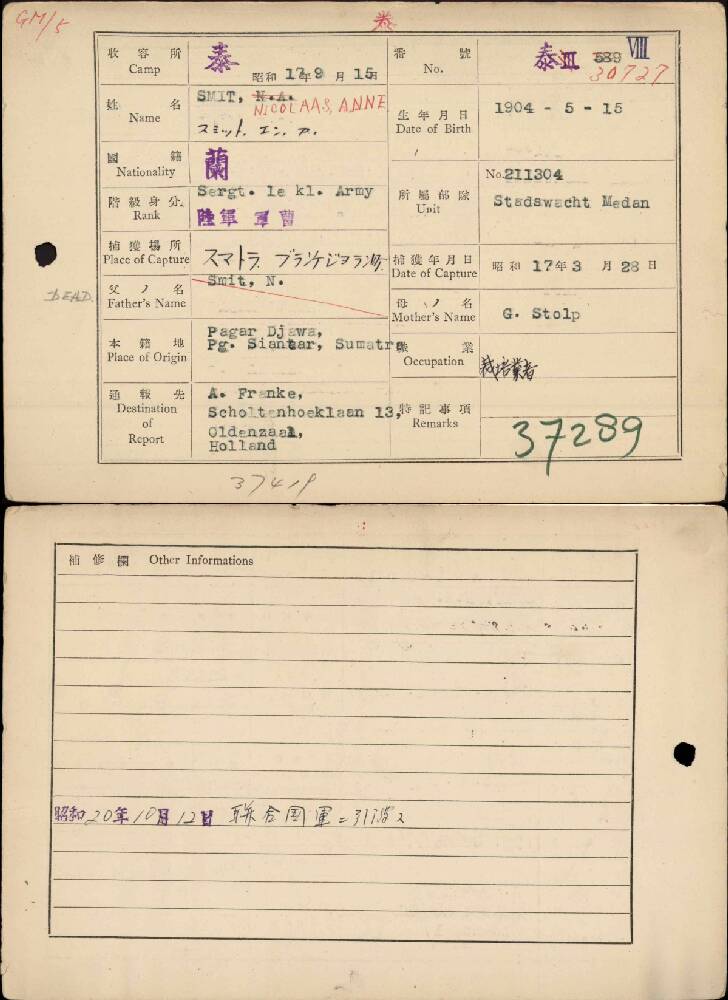 GM/5
收容所 泰 昭和 17年 9月 15日
Camp
番號 泰III 589 VIII
No. 30727
姓名 SMIT, N.A. NICOLAAS, ANNE
Name スミット. エン. ア.
生年月日 1904 - 5 - 15
Date of Birth
國籍 蘭
Nationality
階級身分 Sergt. 1e kl. Army
Rank 陸軍 軍曹
所屬部隊 No. 211304
Unit Stadswacht Medan
捕獲場所 スマトラ
Place of Capture
捕獲年月日 昭和 17年 3月 28日
Date of Capture
DEAD.
父ノ名 Smit, N.
Father's Name
母ノ名 G. Stolp
Mother's Name
本籍地 Pagar Djawa,
Place of Origin Pg. Siantar, Sumatra
職業 栽培業者
Occupation
通報先 A. Franke,
Destination Scholtenhoeklaan 13,
of Oldenzaal,
Report Holland
特記事項
Remarks 37289
37419
補修欄 Other Informations
昭和20年10月12日 聯合国軍ニ引渡ス